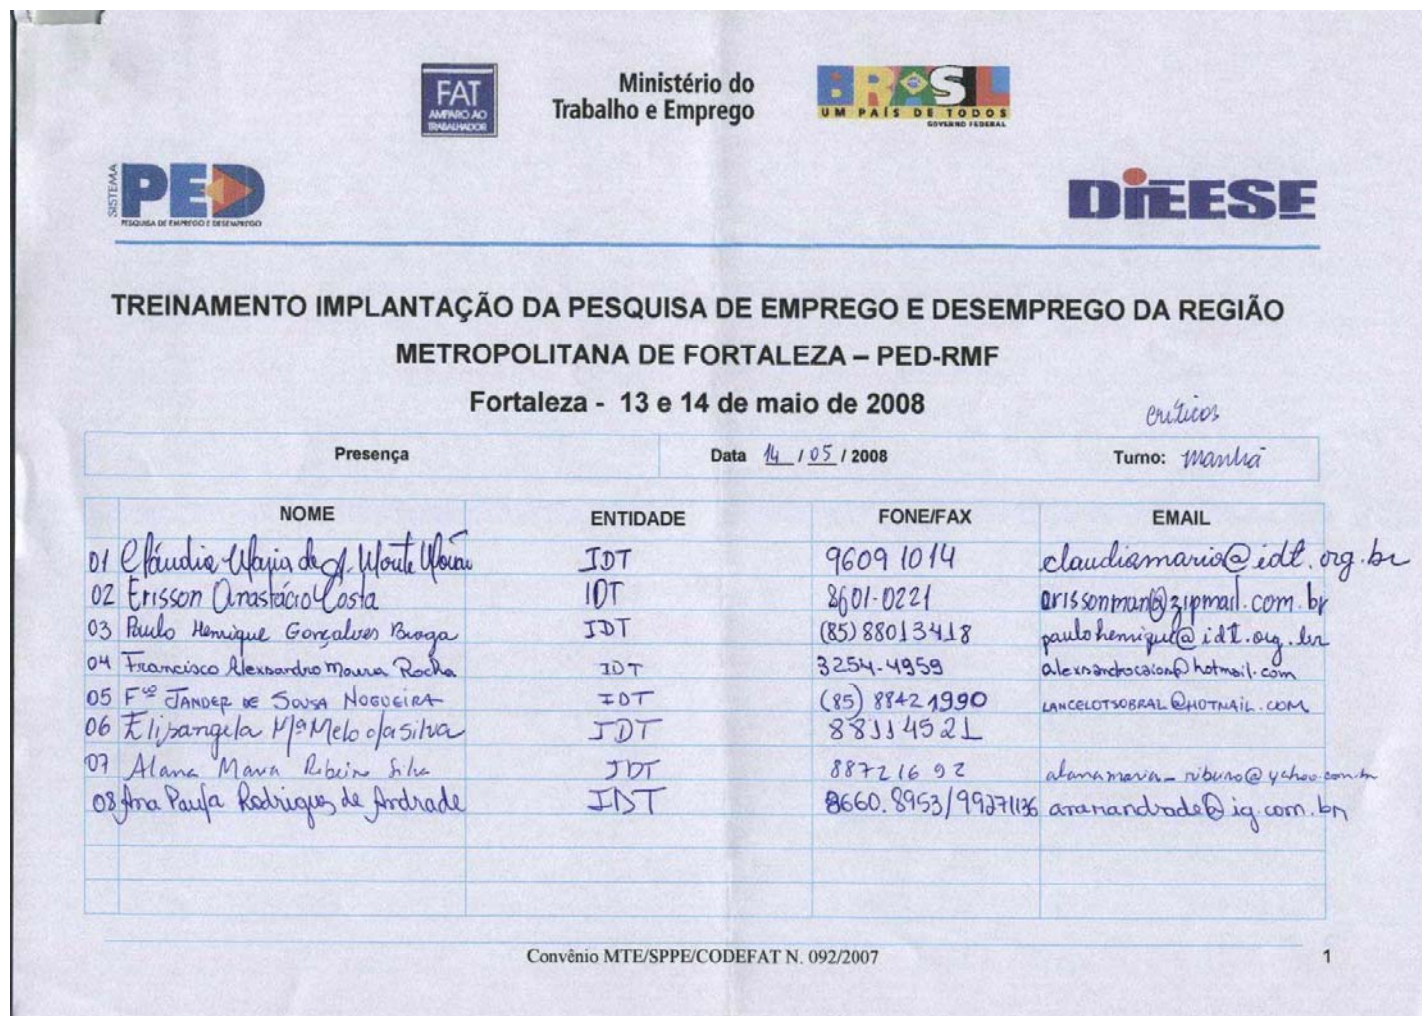 FAT
AMPARO AO
TRABALHADOR
Ministério do
Trabalho e Emprego
BRASIL
UM PAÍS DE TODOS
GOVERNO FEDERAL
SISTEMA
PED
PESQUISA DE EMPREGO E DESEMPREGO
DIEESE
TREINAMENTO IMPLANTAÇÃO DA PESQUISA DE EMPREGO E DESEMPREGO DA REGIÃO
METROPOLITANA DE FORTALEZA – PED-RMF
Fortaleza - 13 e 14 de maio de 2008
críticos
Presença Data 14 / 05 / 2008 Turno: manhã
NOME ENTIDADE FONE/FAX EMAIL
01 Cláudia Maria de A. Monte IDT 9609 1014 claudiamaria@idt.org.br
02 Erisson Anastácio Costa IDT 8601-0221 erissonman@zipmail.com.br
03 Paulo Henrique Gonçalves Braga IDT (85) 88013418 paulohenrique@idt.org.br
04 Francisco Alexsandro Moura Rocha IDT 3254-4959
05 Fco JANDER DE SOUSA NOGUEIRA IDT (85) 8842 1990 LANCELOTSOBRAL@HOTMAIL.COM
06 Elisangela Mª Melo da Silva IDT 88114521
07 Alana Maria Ribeiro Silva IDT 88721692
08 Ana Paula Rodrigues de Andrade IDT 8660.8953/99271136
Convênio MTE/SPPE/CODEFAT N. 092/2007 1